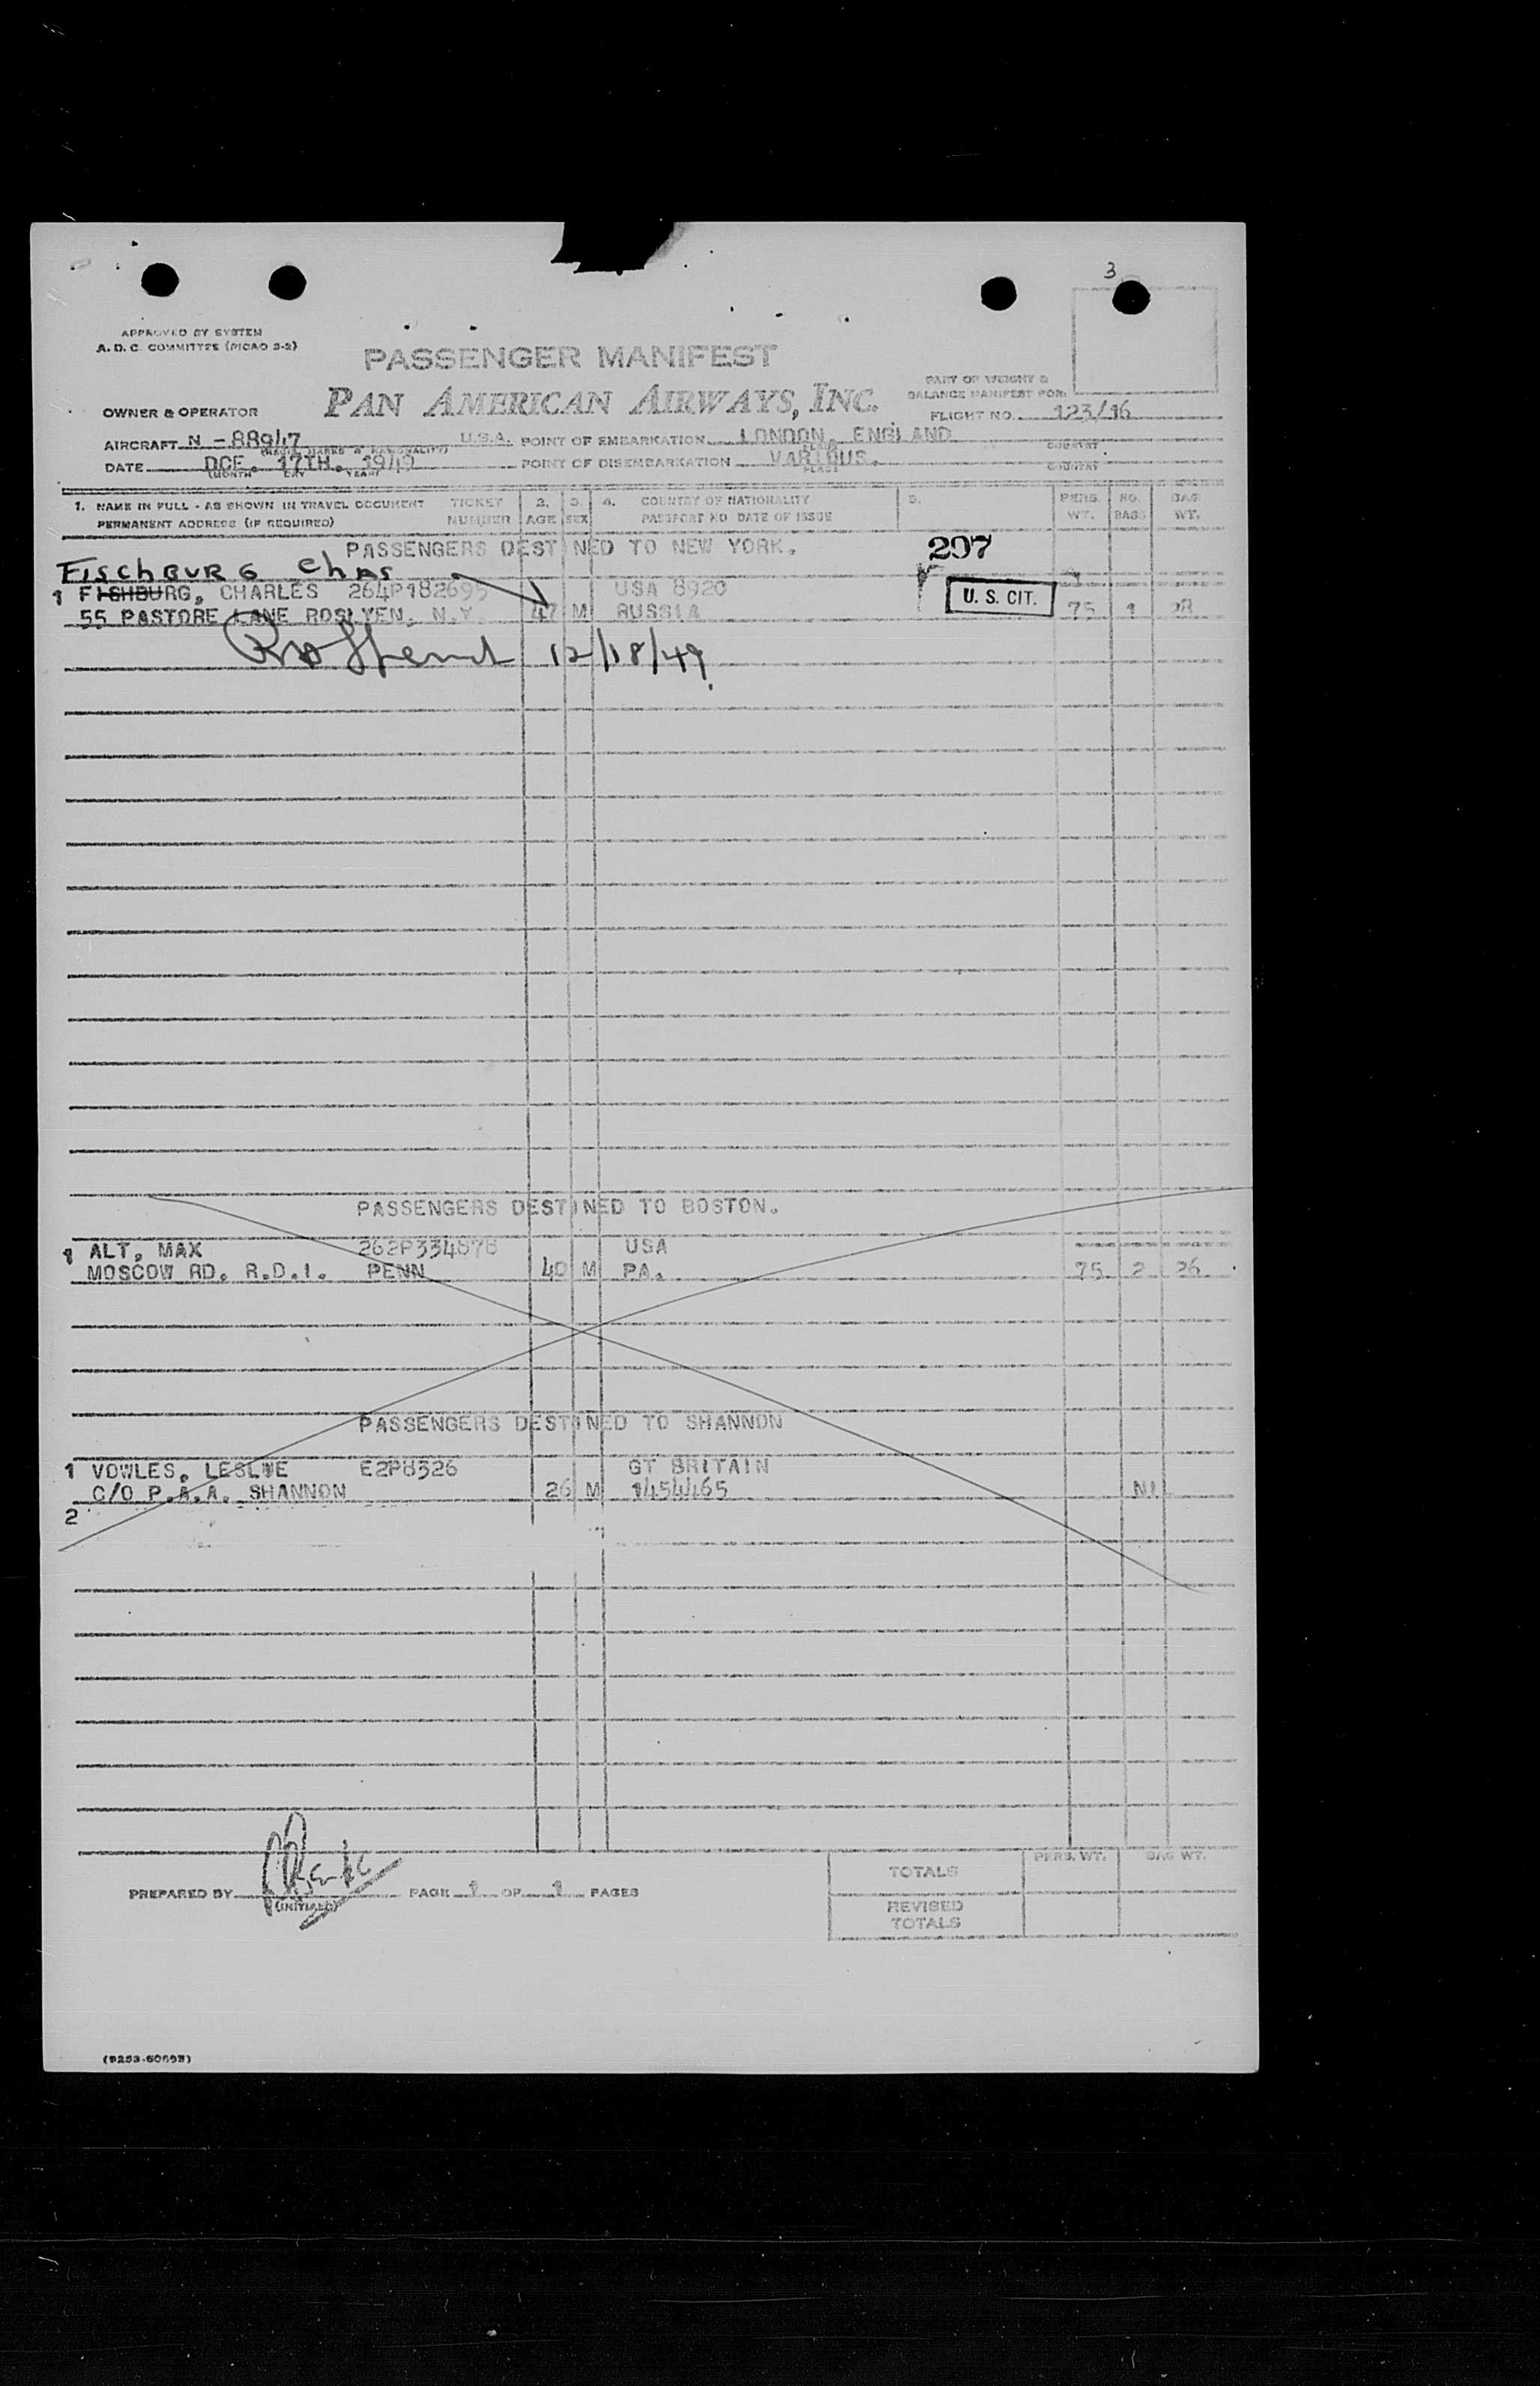 3
APPROVED BY SYSTEM
A. D. C. COMMITTEE (PICAO 2-2)
PASSENGER MANIFEST
PAN AMERICAN AIRWAYS, INC.
PART OF WEIGHT &
BALANCE MANIFEST FOR:
OWNER & OPERATOR
FLIGHT NO. 123/16
AIRCRAFT N - 88947 U.S.A. POINT OF EMBARKATION LONDON, ENGLAND
(REGIS. MARKS & NATIONALITY) PLACE COUNTRY
DATE DCE. 17TH. 1949 POINT OF DISEMBARKATION VARIOUS.
(MONTH DAY YEAR) PLACE COUNTRY
1. NAME IN FULL - AS SHOWN IN TRAVEL DOCUMENT TICKET 2. 3. 4. COUNTRY OF NATIONALITY 5. PERS. NO. BAG
PERMANENT ADDRESS (IF REQUIRED) NUMBER AGE SEX PASSPORT NO DATE OF ISSUE WT. BAGS WT.
PASSENGERS DESTINED TO NEW YORK. 207
FISCHBURG Chas
1 FISHBURG, CHARLES 264P182695 USA 8920 U. S. CIT.
55 PASTORE LANE ROSLYEN, N.Y. 47 M RUSSIA 75 1 28
12/18/49
PASSENGERS DESTINED TO BOSTON.
1 ALT, MAX 262P334878 USA
MOSCOW RD. R.D.1. PENN 40 M PA. 75 2 26
PASSENGERS DESTINED TO SHANNON
1 VOWLES, LESLIE E2P8326 GT BRITAIN
C/O P.A.A. SHANNON 26 M 1454465 NIL
2
PREPARED BY PAGE 1 OF 1 PAGES
(INITIALS)
PERS. WT. BAG WT.
TOTALS
REVISED
TOTALS